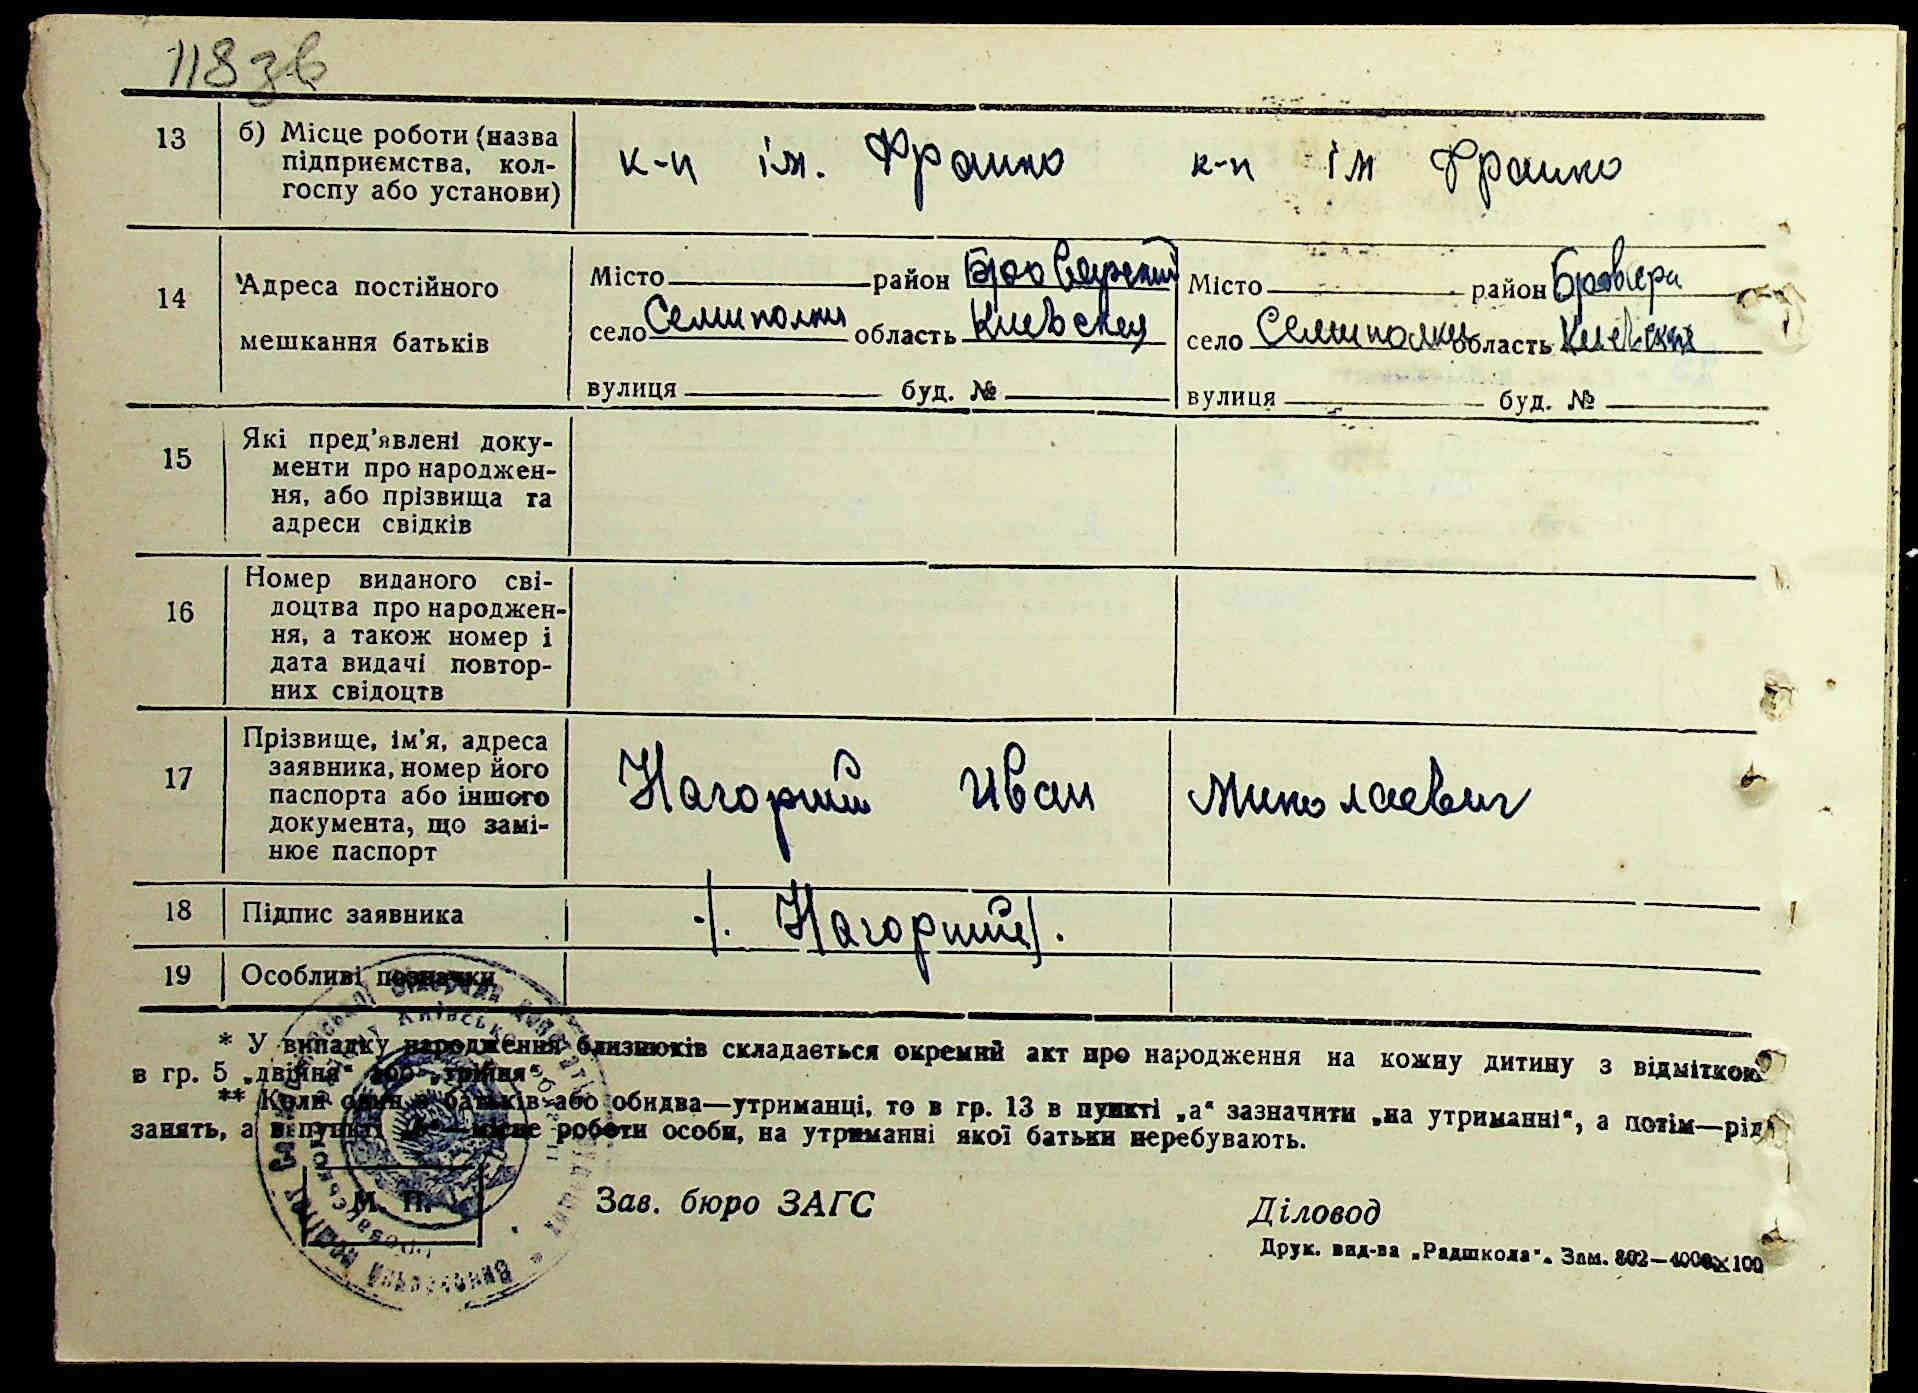 118 зв
13 б) Місце роботи (назва підприємства, колгоспу або установи) к-п ім. Франко к-п ім Франко
14 Адреса постійного мешкання батьків
Місто район Броварский Місто район Бровари
село Семиполки область Киевская село Семиполки область Киевская
вулиця буд. № вулиця буд. №
15 Які пред'явлені доку-
менти про народжен-
ня, або прізвища та
адреси свідків
16 Номер виданого сві-
доцтва про народжен-
ня, а також номер і
дата видачі повтор-
них свідоцтв
17 Прізвище, ім'я, адреса
заявника, номер його
паспорта або іншого
документа, що замі-
нює паспорт
Нагорний Иван Миколаевич
18 Підпис заявника /. Нагорний/.
19 Особливі позначки
* У випадку народження близнюків складається окремий акт про народження на кожну дитину з відміткою
в гр. 5 „двійня“ або „трійня“.
** Коли один з батьків або обидва—утриманці, то в гр. 13 в пункті „а“ зазначити „на утриманні“, а потім—рід
занять, а в пункті „б“—місце роботи особи, на утриманні якої батьки перебувають.
М. П. Зав. бюро ЗАГС Діловод
Друк. вид-ва „Радшкола“. Зам. 802—4000×100